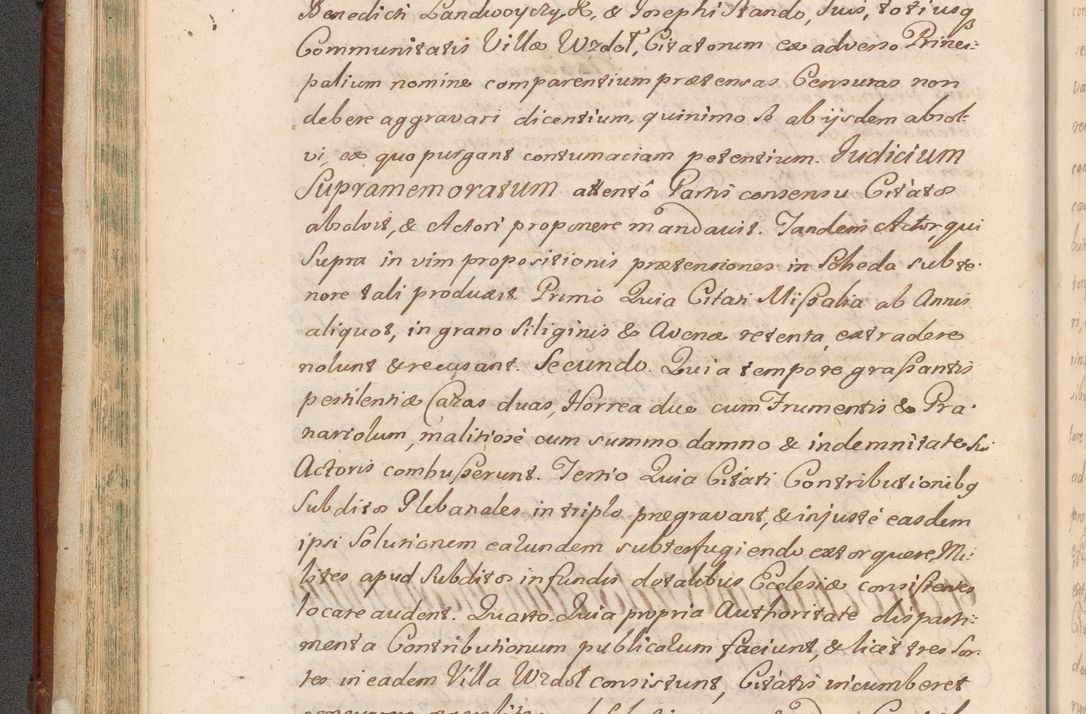 Benedicti Landwoyczyk, & Josephi Stando, suis, totiusq
Communitatis Villæ Wzdoł, Citatorum ex adverso Princi-
palium nomine comparentium prætensas Censuras non
debere aggravari dicentium, quinimo se ab ijsdem absol-
vi, ex quo purgant contumaciam petentium. Judicium
Supramemoratum attentô Partis consensu Citatos
absolvit, & Actori proponere mandavit. Tandem Actor, qui
Supra in vim propositionis prætensiones in Scheda sub te-
nore tali produxit. Primò Quia Citati Missalia ab Annis
aliquot, in grano Siliginis & Avenæ retenta, extradere
nolunt & recusant. Secundo. Quia tempore grassantis
pestilentiæ Casas duas, Horrea duo cum Frumentis & Gra-
nariolum, malitiosè cum summo damno & indemnitate sui
Actoris combusserunt. Tertio Quia Citati Contributionibq
Subditos Plebanales in triplo prægravant, & injustè easdem
ipsi Solutionem earundem subterfugiendo extorquere, Mi-
lites apud Subditos in fundis dotalibus Ecclesiæ consistentes
locare audent. Quarto. Quia propria Authoritate disparti-
menta Contributionum publicarum faciunt, & licet tres Sor-
tes in eadem Villa Wzdoł consistunt, Citatis incumberet